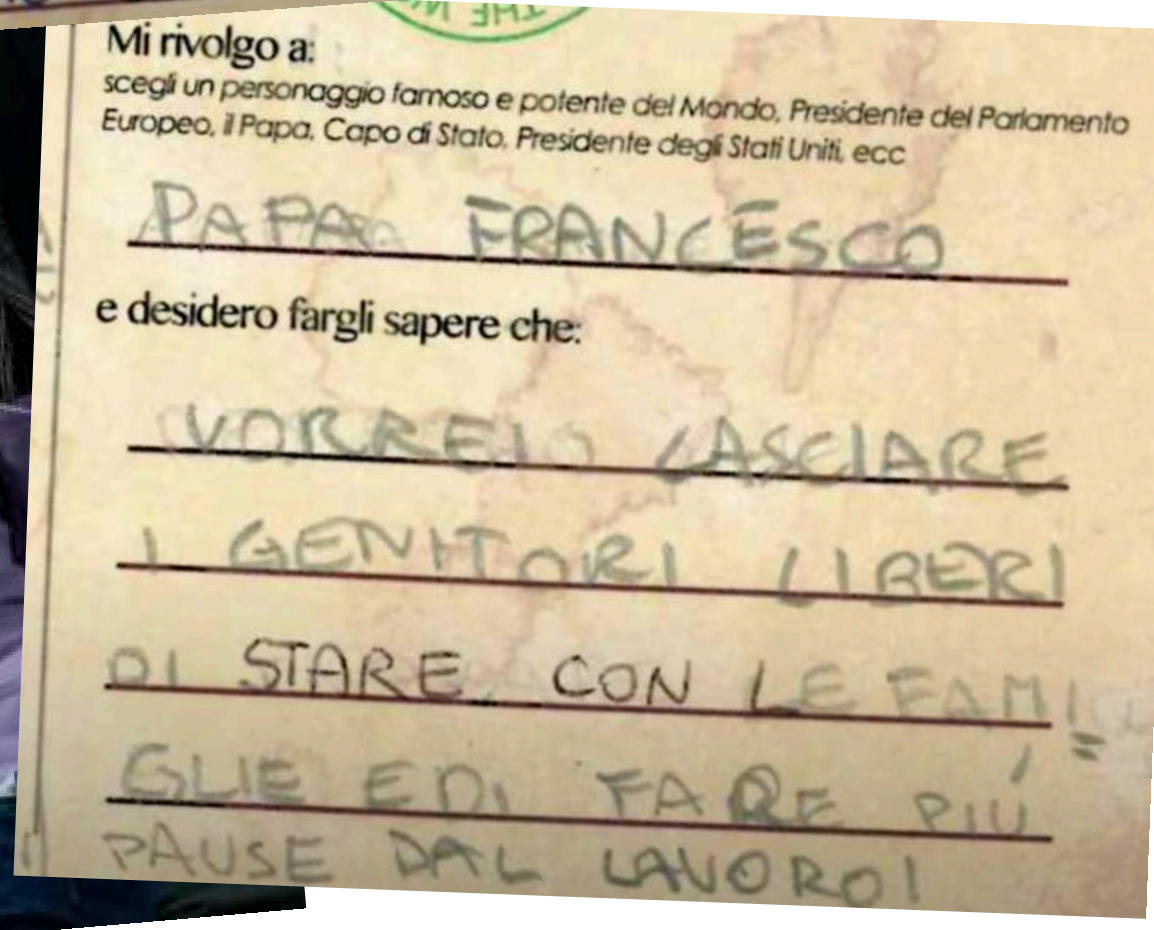 THE
Mi rivolgo a:
scegli un personaggio famoso e potente del Mondo, Presidente del Parlamento
Europeo, il Papa, Capo di Stato, Presidente degli Stati Uniti, ecc
PAPA FRANCESCO
e desidero fargli sapere che:
VORREIO LASCIARE
I GENITORI LIBERI
DI STARE CON LE FAMI
GLIE E DI FARE PIÚ
PAUSE DAL LAVORO!